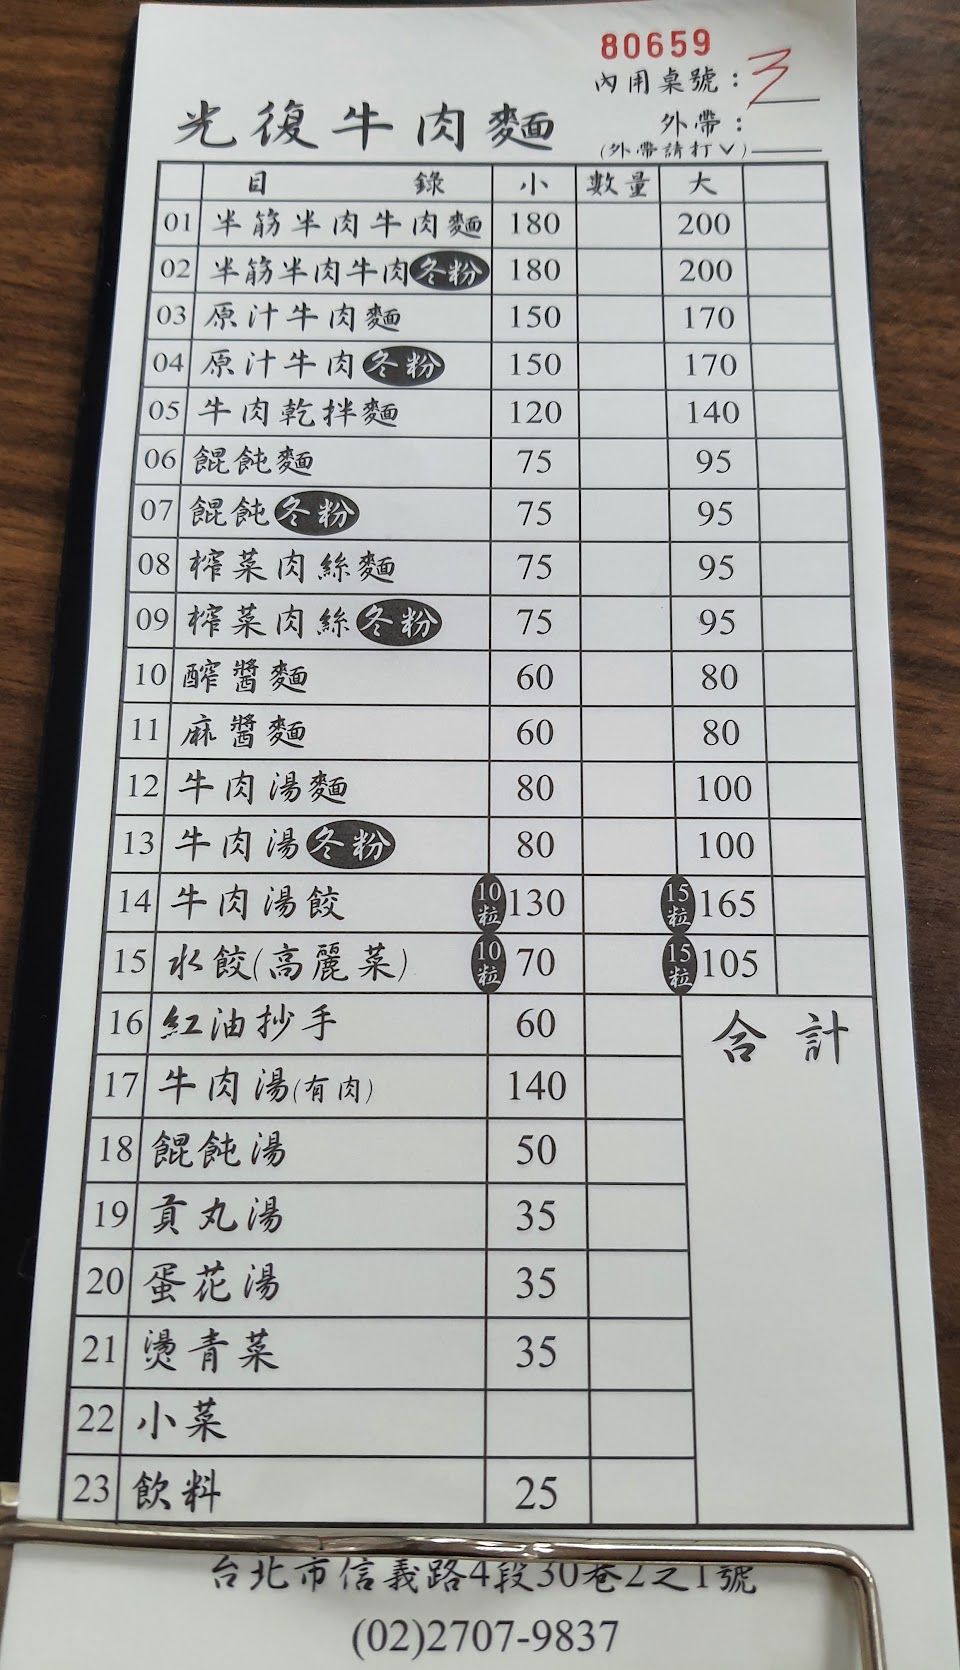 80659
內用桌號：3
光復牛肉麵
外帶：
(外帶請打V)
目錄 小 數量 大
01 半筋半肉牛肉麵 180 200
02 半筋半肉牛肉冬粉 180 200
03 原汁牛肉麵 150 170
04 原汁牛肉冬粉 150 170
05 牛肉乾拌麵 120 140
06 餛飩麵 75 95
07 餛飩冬粉 75 95
08 榨菜肉絲麵 75 95
09 榨菜肉絲冬粉 75 95
10 醡醬麵 60 80
11 麻醬麵 60 80
12 牛肉湯麵 80 100
13 牛肉湯冬粉 80 100
14 牛肉湯餃 10粒 130 15粒 165
15 水餃(高麗菜) 10粒 70 15粒 105
16 紅油抄手 60 合計
17 牛肉湯(有肉) 140
18 餛飩湯 50
19 貢丸湯 35
20 蛋花湯 35
21 燙青菜 35
22 小菜
23 飲料 25
台北市信義路4段30巷2之1號
(02)2707-9837